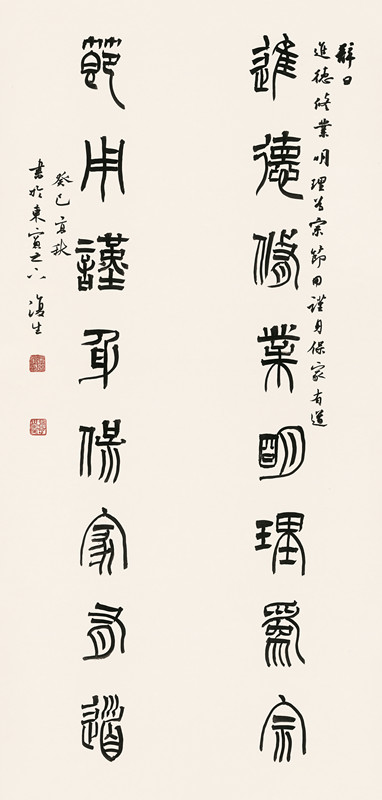 辭曰
進德修業明理為宗節用謹身保家有道
進德修業明理為宗
節用謹身保家有道
癸巳
書於東賓之
復生